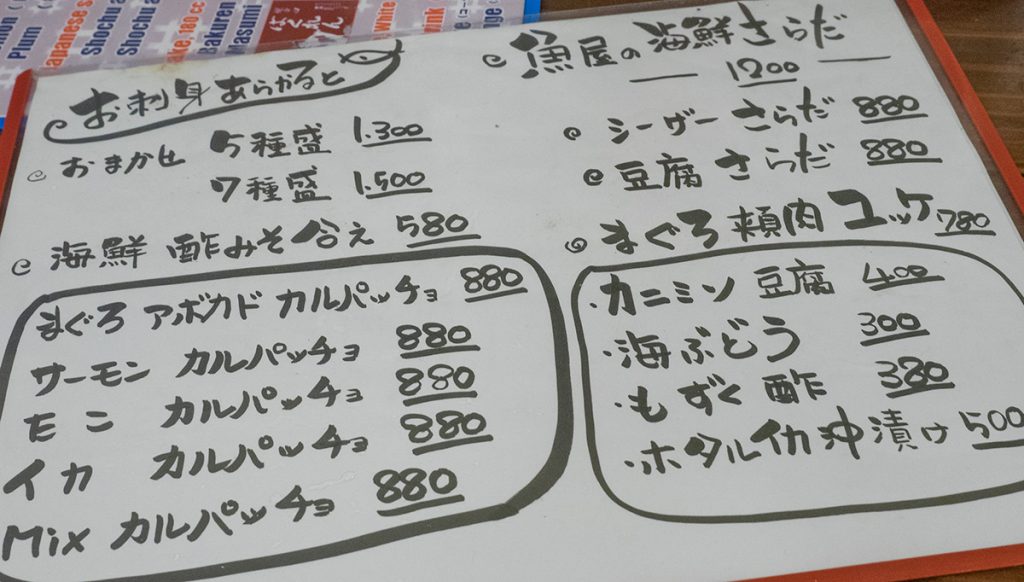 Plum
Japanese s
Shochu
Shochu a
ake 180 cc
Bakuren
Masumi
white
お刺身あらかると
おまかせ 5種盛 1.300
7種盛 1.500
海鮮 酢みそ合え 580
まぐろ アボカド カルパッチョ 880
サーモン カルパッチョ 880
たこ カルパッチョ 880
イカ カルパッチョ 880
Mix カルパッチョ 880
魚屋の海鮮さらだ
1200
シーザーさらだ 880
豆腐さらだ 880
まぐろ頬肉ユッケ 780
・カニミソ豆腐 400
・海ぶどう 300
・もずく酢 380
・ホタルイカ沖漬け 500